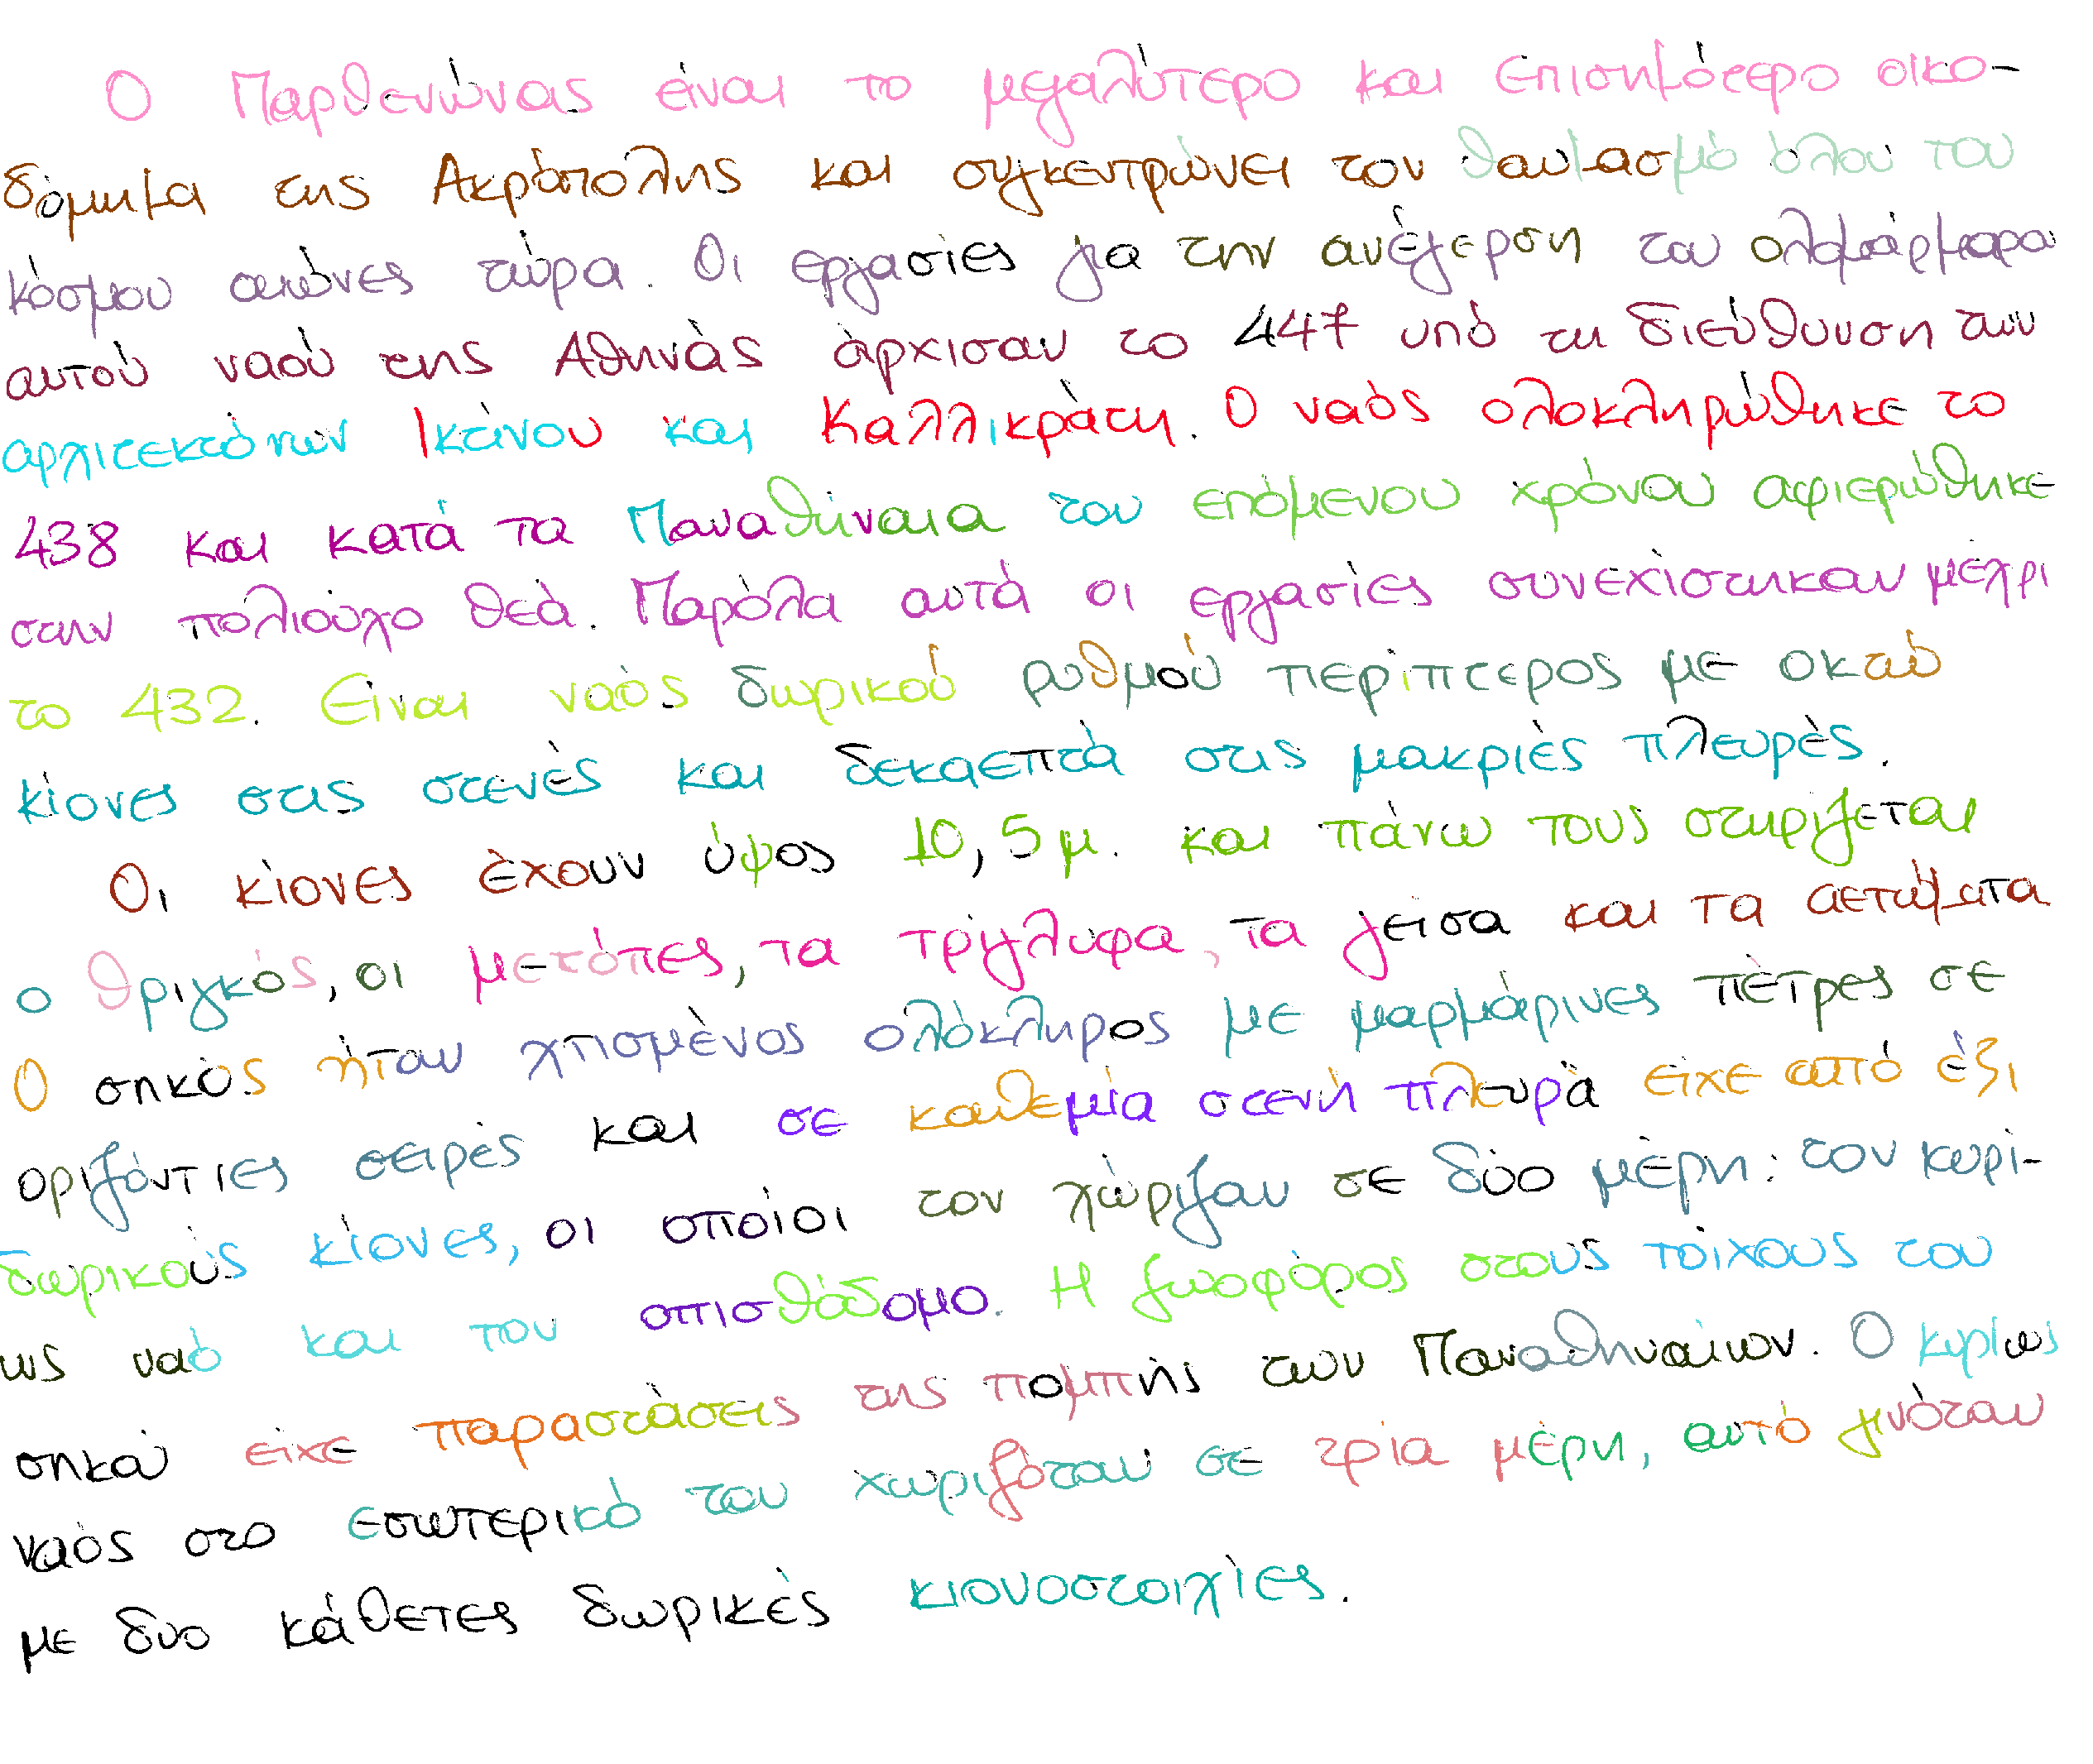 Ο Παρθενώνας είναι το μεγαλύτερο και επισημότερο οικο-
δόμημα της Ακρόπολης και συγκεντρώνει τον θαυμασμό όλου του
κόσμου αιώνες τώρα. Οι εργασίες για την ανέγερση του ολομάρμαρου
αυτού ναού της Αθηνάς άρχισαν το 447 υπό τη διεύθυνση των
αρχιτεκτόνων Ικτίνου και Καλλικράτη. Ο ναός ολοκληρώθηκε το
438 και κατά τα Παναθήναια του επόμενου χρόνου αφιερώθηκε
στην πολιούχο θεά. Παρόλα αυτά οι εργασίες συνεχίστηκαν μέχρι
το 432. Είναι ναός δωρικού ρυθμού περίπτερος με οκτώ
κίονες στις στενές και δεκαεπτά στις μακριές πλευρές.
Οι κίονες έχουν ύψος 10,5μ. και πάνω τους στηρίζεται
ο θριγκός, οι μετόπες, τα τρίγλυφα, τα γείσα και τα αετώματα
Ο σηκός ήταν χτισμένος ολόκληρος με μαρμάρινες πέτρες σε
οριζόντιες σειρές και σε καθεμία στενή πλευρά είχε από έξι
δωρικούς κίονες, οι οποίοι τον χώριζαν σε δύο μέρη: τον κυρί-
ως ναό και τον οπισθόδομο. Η ζωοφόρος στους τοίχους του
σηκού είχε παραστάσεις της πομπής των Παναθηναίων. Ο κυρίως
ναός στο εσωτερικό του χωριζόταν σε τρία μέρη, αυτό γινόταν
με δυο κάθετες δωρικές κιονοστοιχίες.